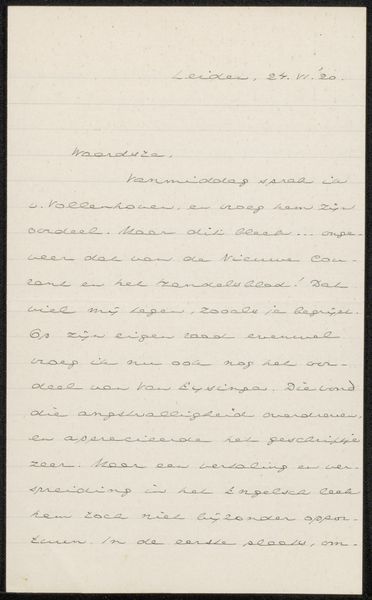 Leiden, 24.VI.'20.
Waardste,
Vanmiddag sprak ik
v. Vollenhoven, en vroeg hem zijn
oordeel. Maar dit bleek ... onge-
veer dat van de Nieuwe Cou-
rant en het Handelsblad! Dat
viel mij tegen, zooals je begrijpt.
Op zijn eigen raad evenwel
vroeg ik nu ook nog het oor-
deel van Van Eysinga. Die vond
die angstvalligheid overdreven,
en apprecieerde het geschriftje
zeer. Maar een vertaling en ver-
spreiding in het Engelsch leek
hem toch niet bijzonder oppor-
tuun. In de eerste plaats, om-